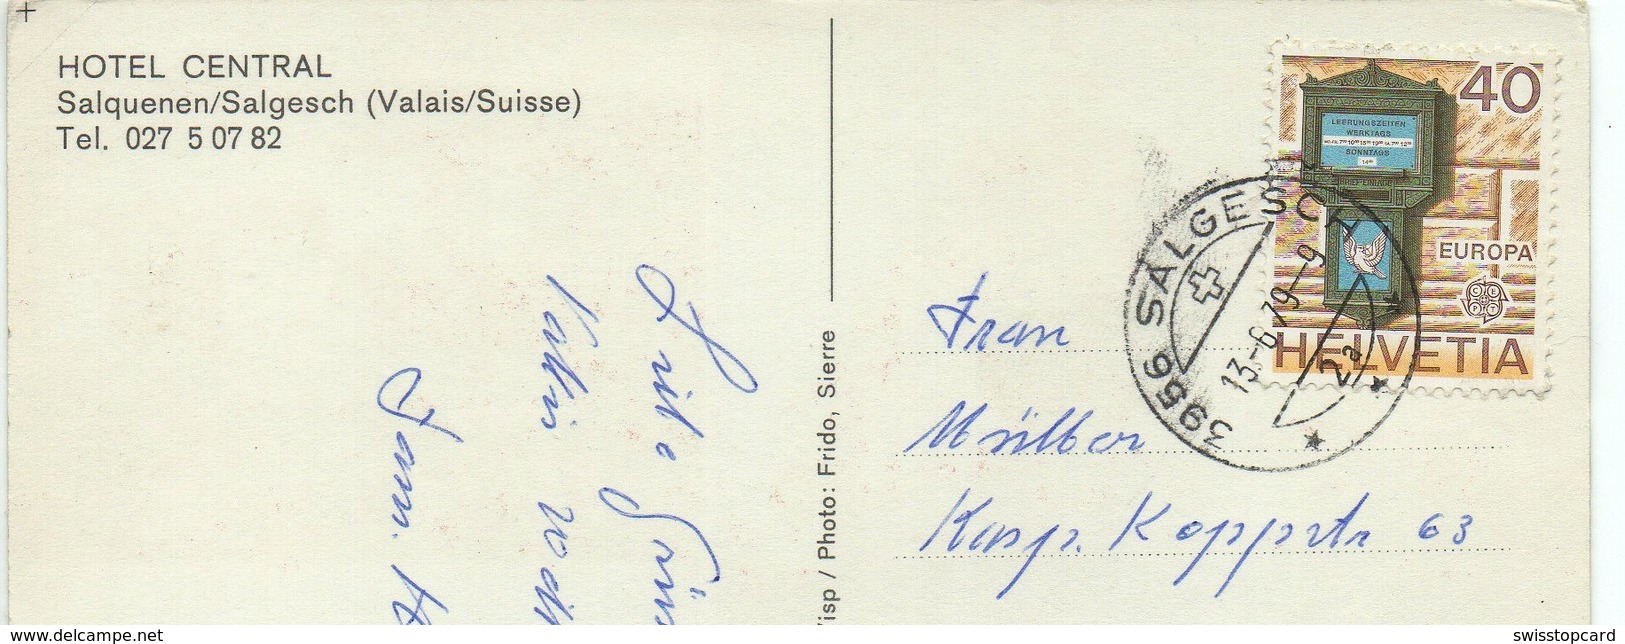 HOTEL CENTRAL
Salquenen/Salgesch (Valais/Suisse)
Tel. 027 5 07 82
Gute Grü
Fam.
isp / Photo: Frido, Sierre
40
LEERUNGSZEITEN
WERKTAGS
SONNTAGS
EUROPA
CEPT
HELVETIA
3956 SALGESCH
13.-6.79-9
2a
Frau
Mülber
Kasp. Koppstr 63
delcampe.net
swisstopcard